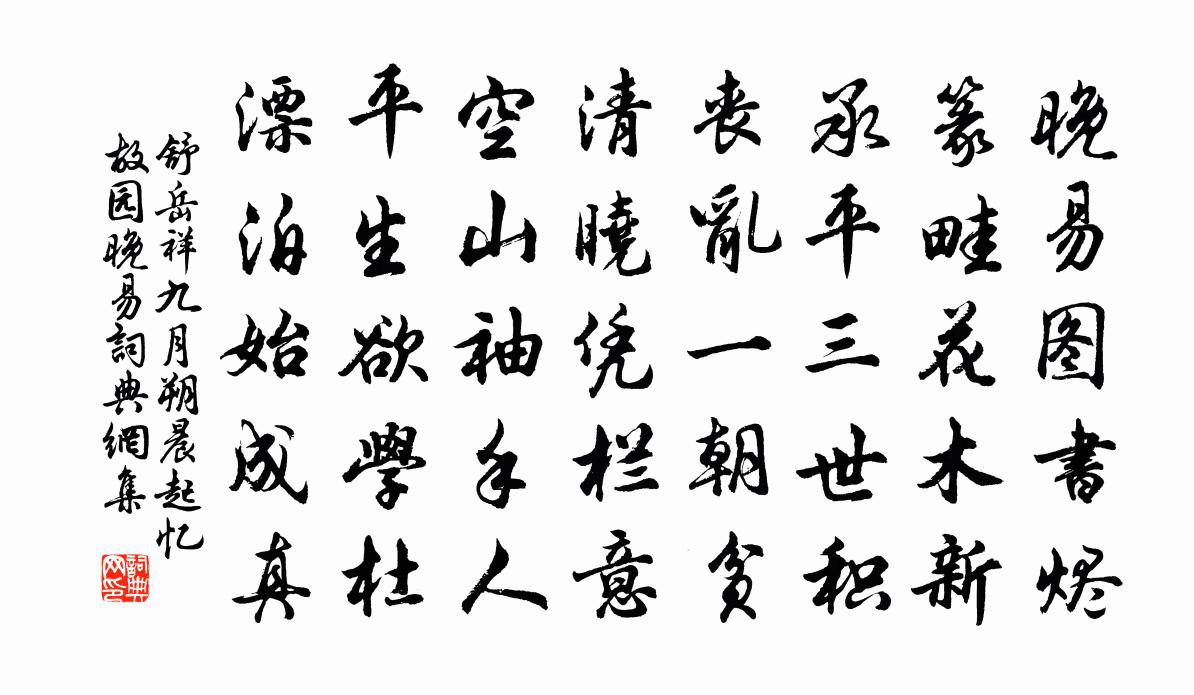 晚易图书烬
篆畦花木新
承平三世积
丧亂一朝贫
清曉凭栏意
空山袖手人
平生欲學杜
漂泊始成真
舒岳祥九月朔晨起忆
故园晚易詞典網集
詞典网印